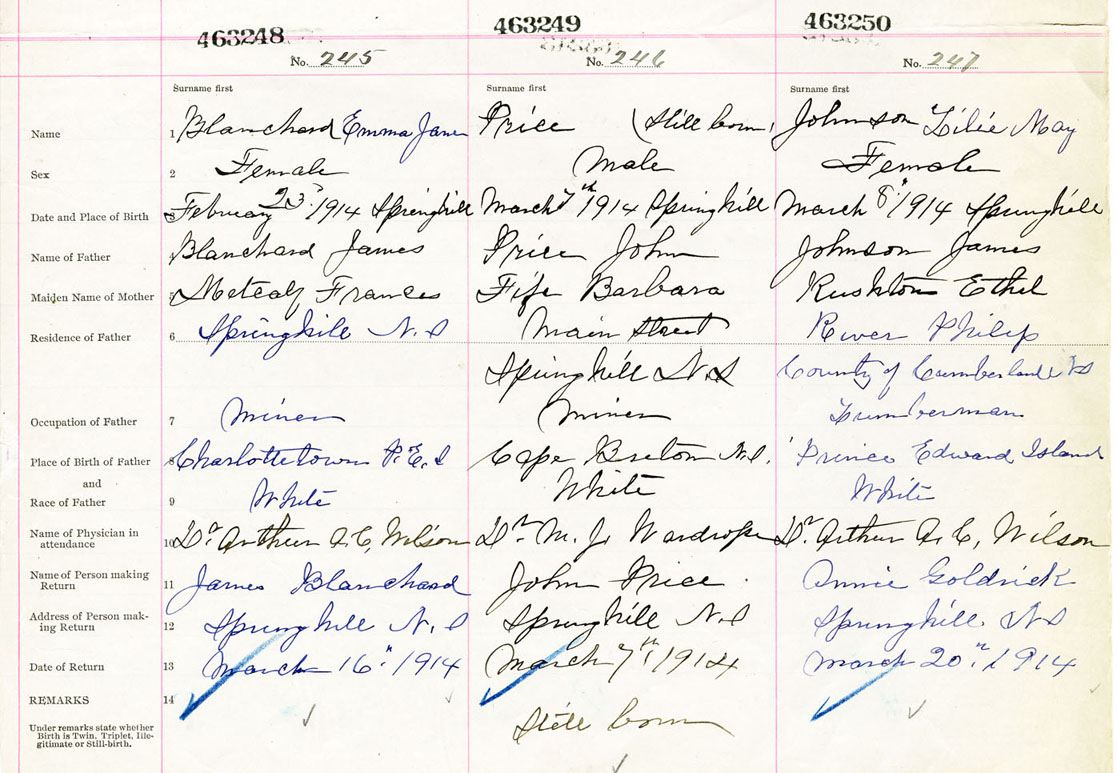 463248 463249 463250
No. 245 No. 246 No. 247
Surname first Surname first Surname first
Name 1 Blanchard Emma Jane Price (Still born) Johnson Lilie May
Sex 2 Female Male Female
Date and Place of Birth 3 February 23" 1914 Springhill March 7th 1914 Springhill March 8" 1914 Springhill
Name of Father 4 Blanchard James Price John Johnson James
Maiden Name of Mother 5 Metcalf Frances Fife Barbara Rushton Ethel
Residence of Father 6 Springhill N.S Main Street River Philip
Springhill N.S County of Cumberland NS
Occupation of Father 7 Miner Miner Lumberman
Place of Birth of Father 8 Charlottetown P.E.I Cape Breton N.S. Prince Edward Island
and
Race of Father 9 White White White
Name of Physician in
attendance 10 Dr. Arthur A.C. Wilson Dr. M. J. Wardrope Dr. Arthur A. C, Wilson
Name of Person making
Return 11 James Blanchard John Price Annie Goldrick
Address of Person mak-
ing Return 12 Springhill N.S Springhill N.S Springhill. N.S
Date of Return 13 March 16" 1914 March 7th 1914 March 20" 1914
REMARKS 14
Under remarks state whether
Birth is Twin, Triplet, Ille-
gitimate or Still-birth.
Still born